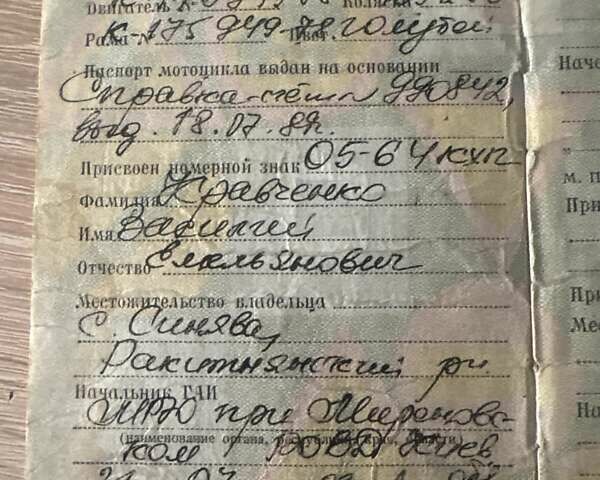 Двигатель № Коляска
Рама № К-175 949 Цвет голубой
Паспорт мотоцикла выдан на основании
Справка-счёт 990842,
выд. 18.07.89г.
Присвоен номерной знак 05-64 кхп
Фамилия Кравченко
Имя Василий
Отчество Емельянович
Местожительство владельца
с. Синява,
Ракитнянский р-н
Начальник ГАИ
МРЭО при Миронов-
(наименование органа, республики, края, области)
ском РОВД Киев
Наче
"
м. п.
При
При
Мес
На